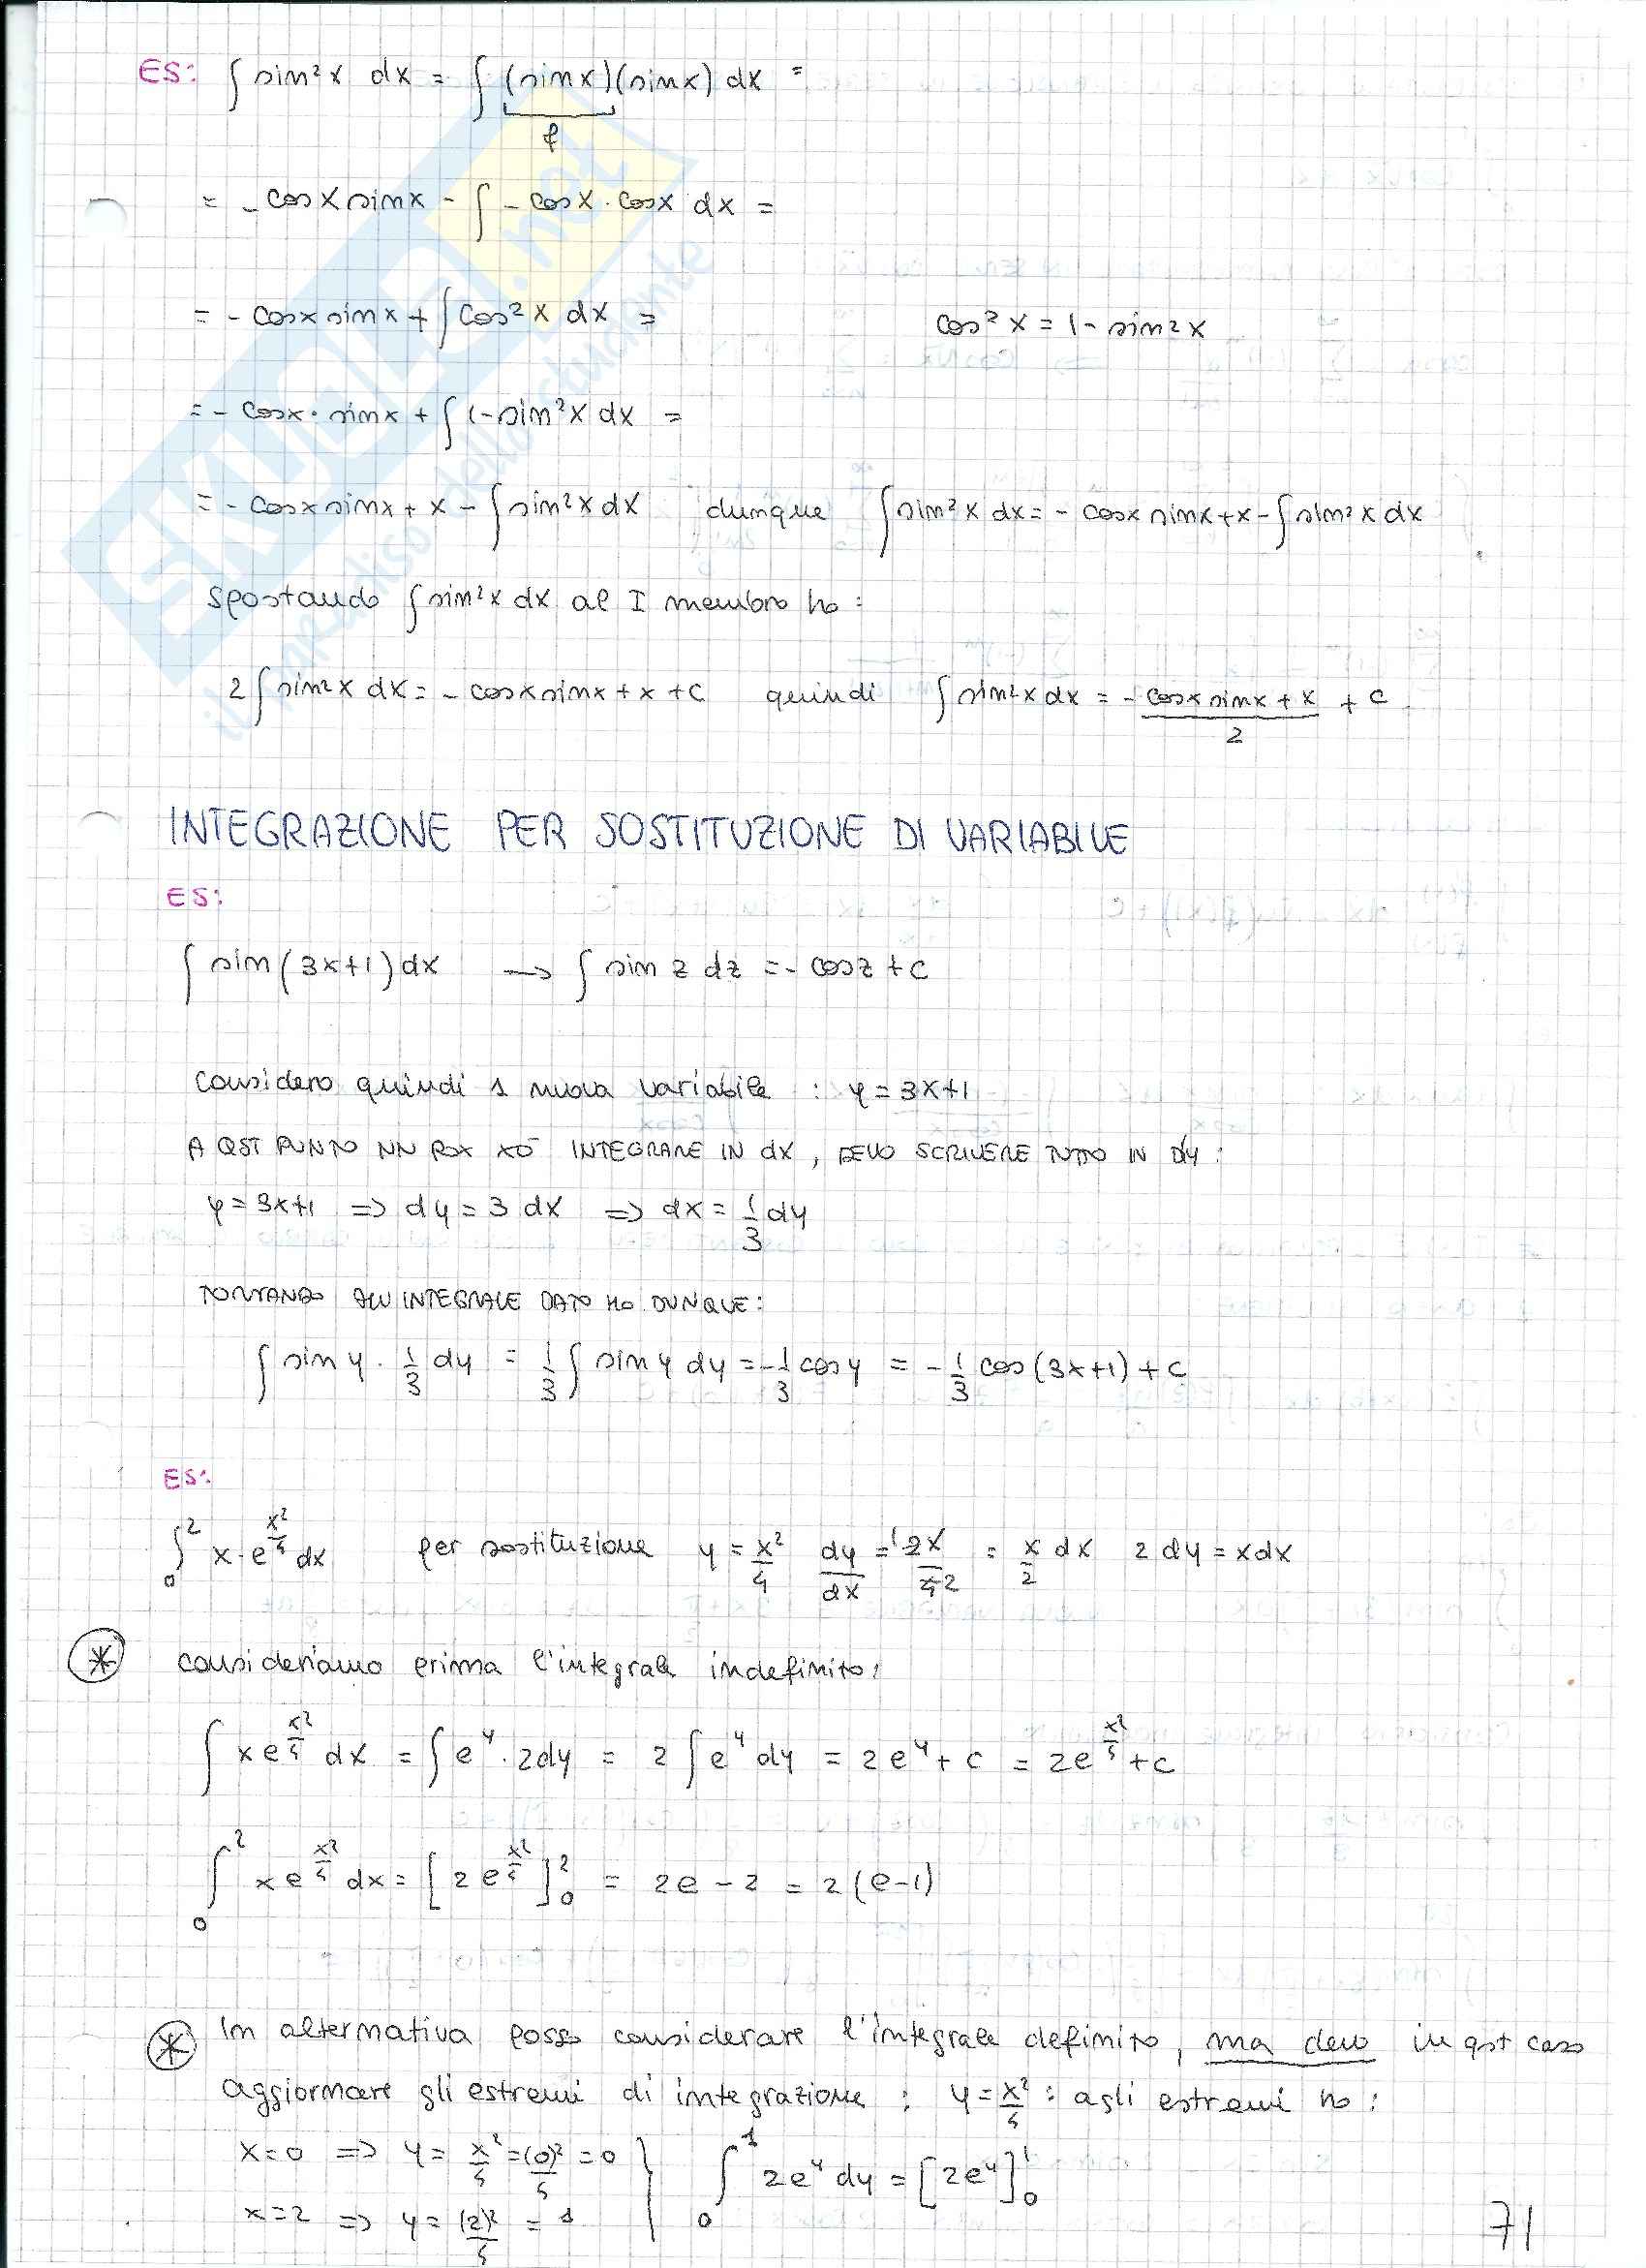 ES: ∫ sin²x dx = ∫ (sinx)(sinx) dx =
f
= - cosx sinx - ∫ - cosx · cosx dx =
= - cosx sinx + ∫ cos²x dx = cos²x = 1 - sin²x
= - cosx · sinx + ∫ 1 - sin²x dx =
= - cosx sinx + x - ∫ sin²x dx dunque ∫ sin²x dx = - cosx sinx + x - ∫ sin²x dx
Spostando ∫ sin²x dx al I membro ho:
2 ∫ sin²x dx = - cosx sinx + x + c quindi ∫ sin²x dx = -(cosx sinx + x)/2 + c
INTEGRAZIONE PER SOSTITUZIONE DI VARIABILE
ES:
∫ sin(3x+1) dx → ∫ sin z dz = - cosz + c
Considero quindi 1 nuova variabile : y = 3x+1
A QST PUNTO NN POX XÒ INTEGRARE IN dx, DEVO SCRIVERE TUTTO IN dy:
y = 3x+1 ⇒ dy = 3 dx ⇒ dx = 1/3 dy
TORNANDO ALL'INTEGRALE DATO HO DUNQUE:
∫ sin y · 1/3 dy = 1/3 ∫ sin y dy = - 1/3 cosy = - 1/3 cos(3x+1) + c
ES:
∫₀² x · e^(x²/4) dx per sostituzione y = x²/4 dy/dx = 2x/4 = x/2 dx 2 dy = x dx
* consideriamo prima l'integrale indefinito:
∫ x e^(x²/4) dx = ∫ e^y · 2dy = 2 ∫ e^y dy = 2e^y + c = 2e^(x²/4) + c
∫₀² x e^(x²/4) dx = [2 e^(x²/4)]₀² = 2e - 2 = 2(e-1)
* In alternativa posso considerare l'integrale definito, ma devo in qst caso
aggiornare gli estremi di integrazione : y = x²/4 : agli estremi ho :
x=0 ⇒ y = x²/4 = (0)²/4 = 0 } ∫₀¹ 2e^y dy = [2e^y]₀¹
x=2 ⇒ y = (2)²/4 = 1
71
SKUOLA.net
il paradiso dello studente